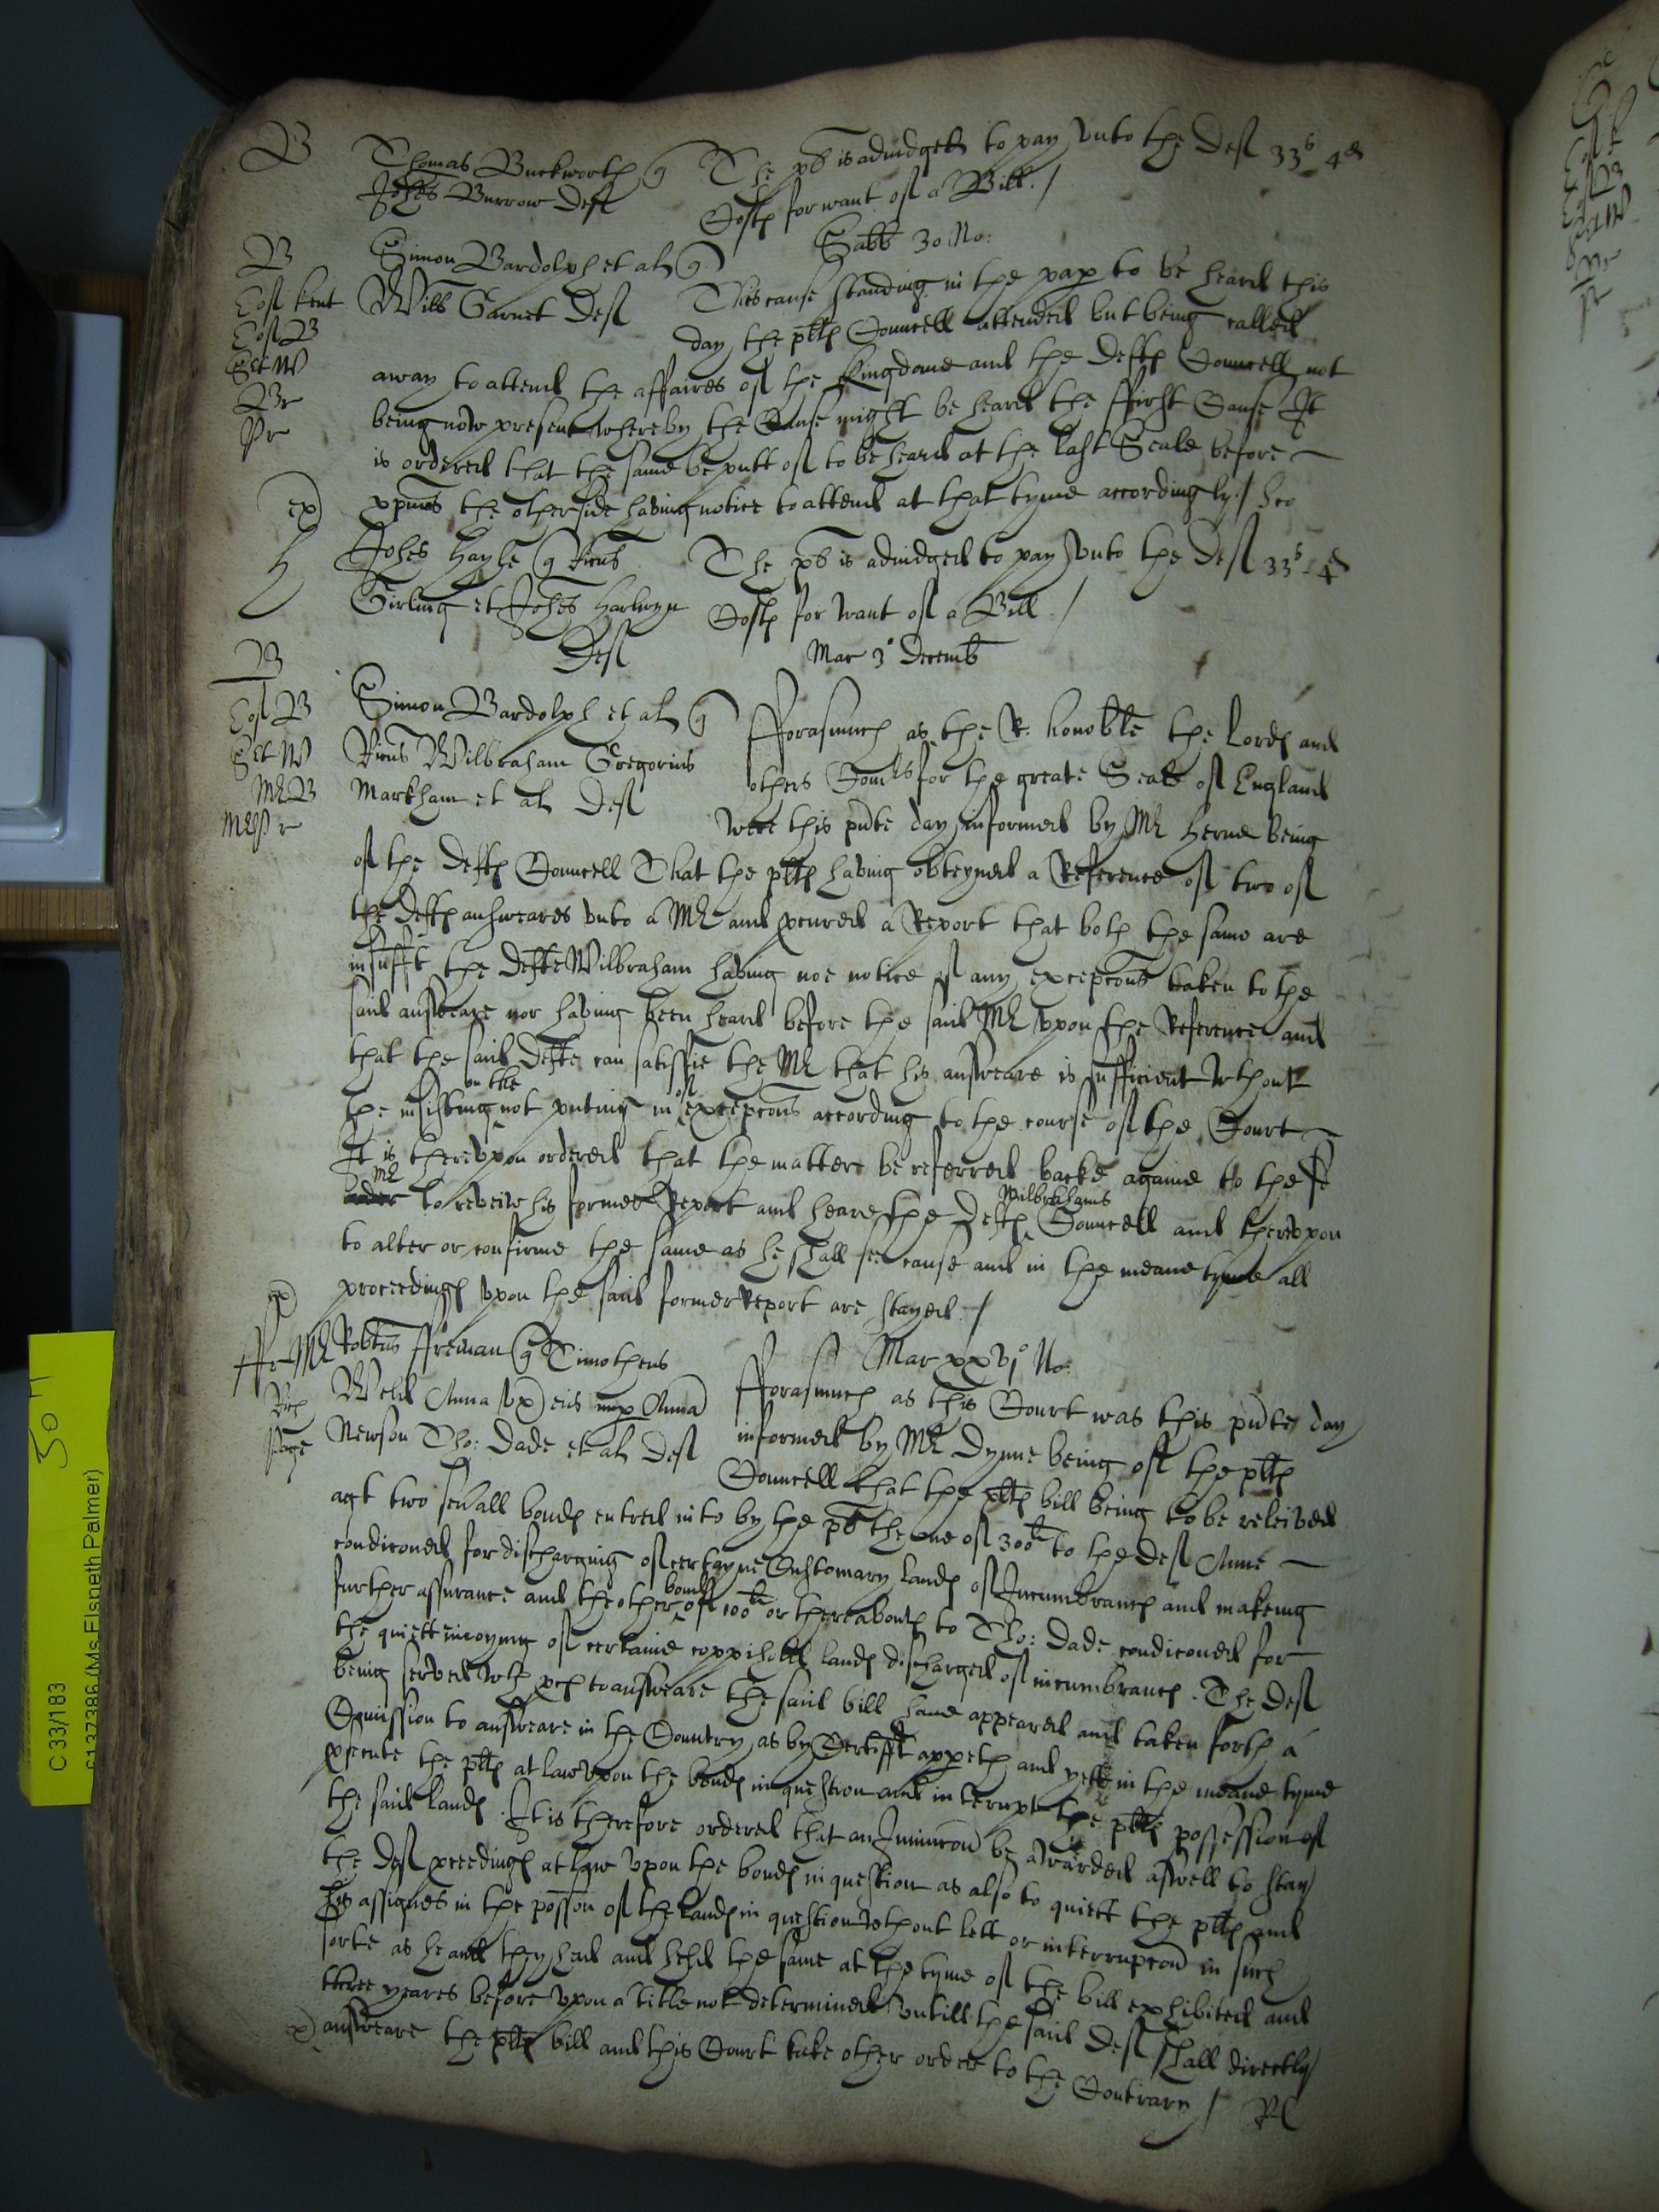 B
Thomas Buckworth q The pl is adiudged to pay vnto the Def 33s 4d
Johes Burrow Def Costs for want of a Bill /
Sabb 30 No:
B
Simon Bardolph et al q
Willo Garnet Def This cause standing in the pap to be heard this
Co: Kent
day the plts Councell attended but being called
Co: B
Ser W
away to attend the affaires of the Kingdome and the Defts Councell not
Br
being now present whereby the Cause might be heard the ffirst Cause It
Pr
is ordered that the same be putt of to be heard at the last Seale before
xpmas the other side having notice to attend at that tyme accordingly /
ex
H
Johes Hayle q Ricus The pl is adiudged to pay vnto the Def 33s 4d
Girling et Johes Harlwyn Costs for want of a Bill /
Def
Mar 3o Decemb
B
Simon Bardolph et al q fforasmuch as the R. honoble the Lords and
Co: B
Ricus Wilbraham Gregorius others Comrs for the greate Seale of England
Ser W
Markham et al Def were this pnte day informed by Mr Herne being
Mr B
Mr Pr
of the Defts Councell That the plts having obteyned a Reference of two of
the Defts answeares vnto a Mr and pcured a Report that both the same are
insufft the Defte Wilbraham having noe notice of any excepcons taken to the
said answeare nor having been heard before the said Mr vpon the Reference and
that the said Defte can satisfie the Mr that his answeare is sufficient wthout
the insisting on the not puting in of excepcons according to the course of the Court
It is therevpon ordered that the matter be referred backe againe to the sd
Mr to reveiw his former Report and heare the Defts Wilbrahams Councell and therevpon
to alter or confirme the same as he shall see cause and in the meane tyme all
proceedings vpon the said former Report are stayed /
ex
ffr Mr
Robtus ffreman q Timotheus Mar xxvjo No:
Weld Anna vx eius nup Anna fforasmuch as this Court was this pnte day
Rich
Page
Newson Tho: Dade et al Def informed by Mr Dynne being of the plts
Councell that the plts bill being to be releived
agt two sevall bonds entred into by the pl the one of 300li to the Def Anne
condiconed for discharging of certayne Customary lands of Incumbrances and makeing
further assurance and the other bond of 100li or thereabouts to Tho: Dade condiconed for
the quiett inioying of certaine coppihold lands discharged of incumbrances. The Def
being served wth pces to answeare the said bill have appeared and taken forth a
Comission to answeare in the Country as by Certifft appeth and yett in the meane tyme
psecute the plts at law vpon the bonds in question and interupt the plts possession of
the said lands. It is therefore ordered that an Iniuncon be awarded aswell to stay
the Def pceedings at law vpon the bonds in question as also to quiett the plts and
his assignes in the posson of the lands in question wthout lett or interrupcon in such
sorte as he and they had and held the same at the tyme of the bill exhibited and
three yeares before vpon a title not determined vntill the said Def shall directly
ex
answeare the plts bill and this Court take other order to the Contrary /
C 33/183
(Ms Elspeth Palmer)